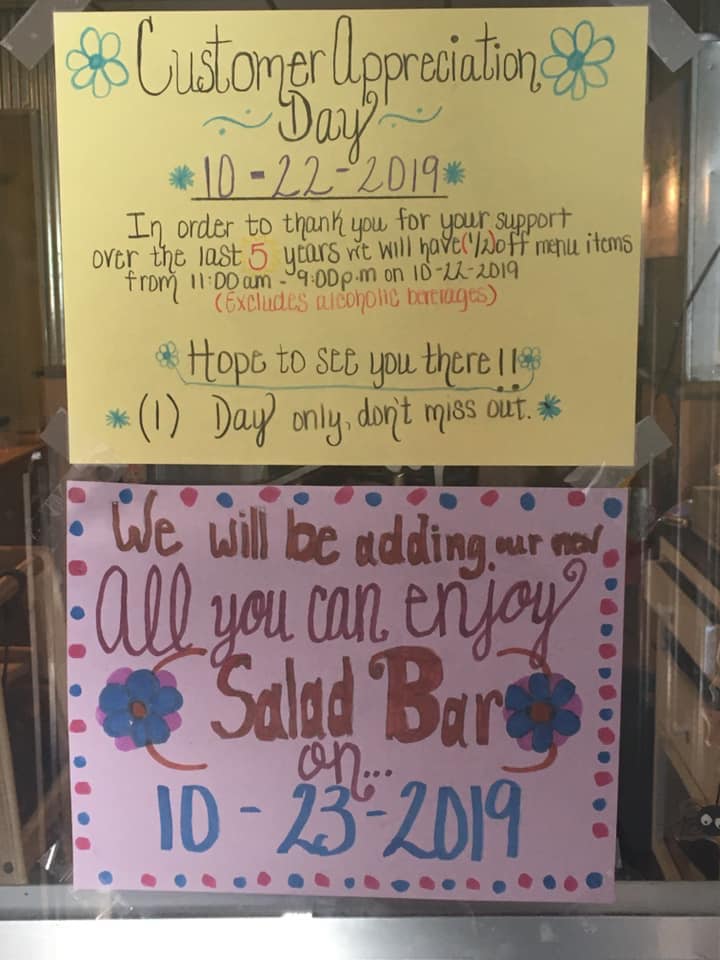 Customer Appreciation
Day
10-22-2019
In order to thank you for your support
over the last 5 years we will have (1/2) off menu items
from 11:00 am - 9:00 p.m on 10-22-2019
(Excludes alcoholic beverages)
Hope to see you there!!
(1) Day only, don't miss out.
We will be adding our new
All you can enjoy
Salad Bar
on...
10-23-2019